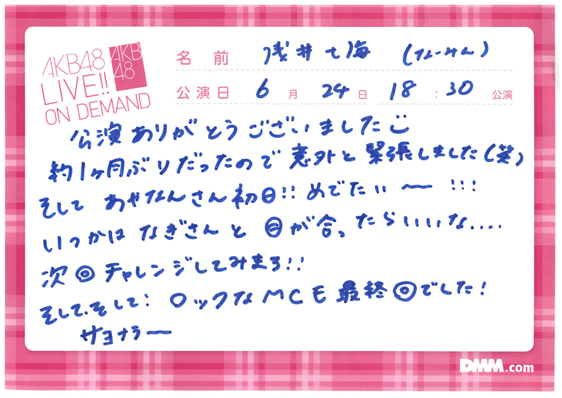 AKB48
LIVE!!
ON DEMAND
AKB
48
名前 浅井七海 (なーみん)
公演日 6月24日 18:30 公演
公演ありがとうございました
約1ヶ月ぶりだったので意外と緊張しました(笑)
そしてあやなんさん初日!!めでたい〜!!!
いつかはなぎさんと目が合ったらいいな....
次回チャレンジしてみまる!!
そして、そして:ロックなMCも最終回でした!
サヨナラー
DMM.com